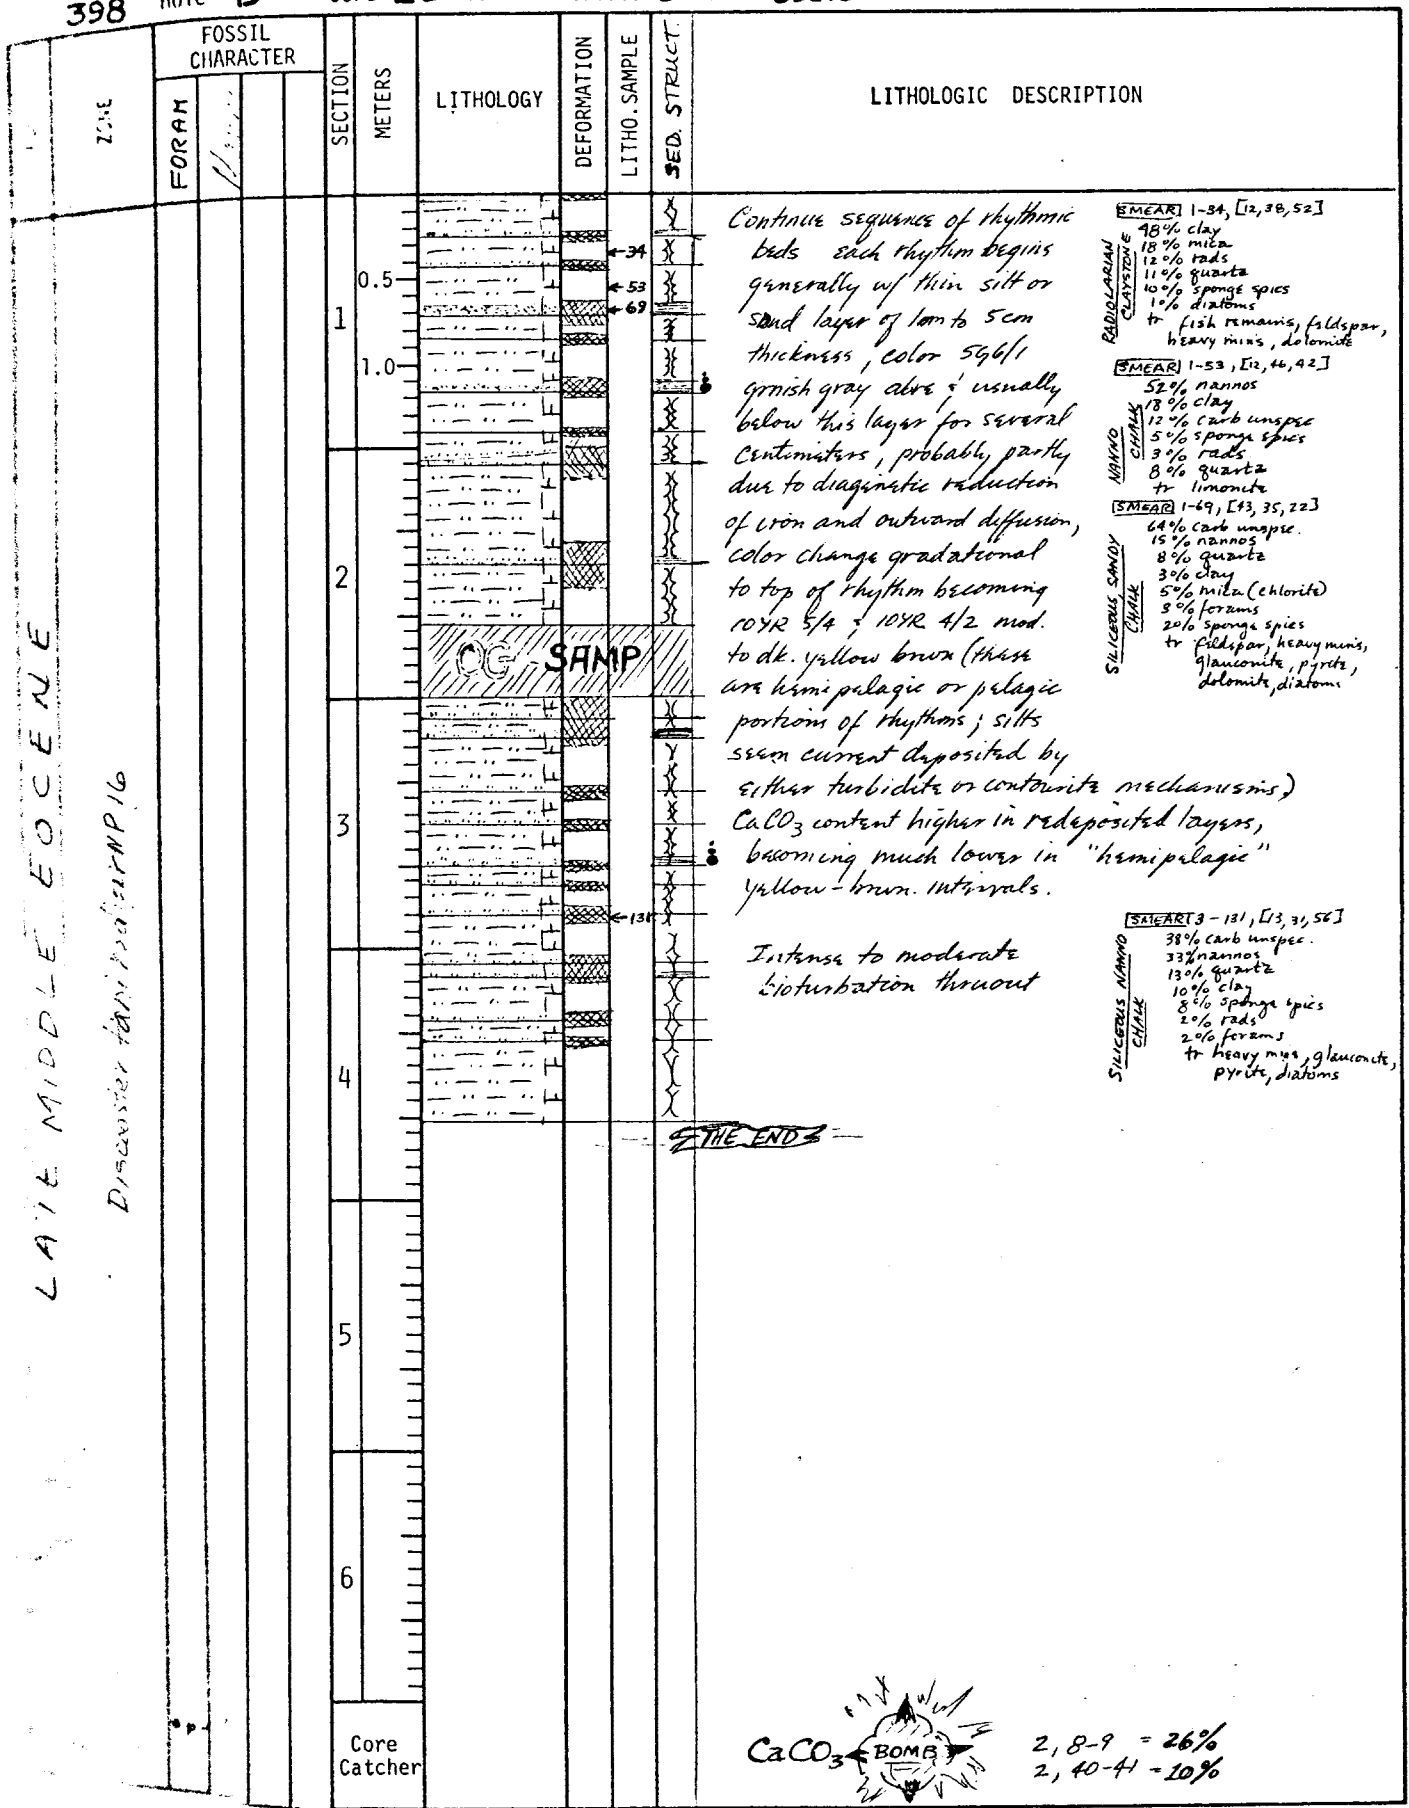 398
FOSSIL
CHARACTER
ZONE
FORAM
SECTION
METERS
LITHOLOGY
DEFORMATION
LITHO. SAMPLE
SED. STRUCT.
LITHOLOGIC DESCRIPTION
LATE MIDDLE EOCENE
Discoaster tani nodifer NP16
0.5
1
1.0
2
3
4
5
6
Core
Catcher
←34
←53
←69
←131
OG - SAMP
Continue sequence of rhythmic
beds each rhythm begins
generally w/ thin silt or
sand layer of 1cm to 5cm
thickness, color 5G6/1
grnish gray above & usually
below this layer for several
centimeters, probably partly
due to diagenetic reduction
of iron and outward diffusion,
color change gradational
to top of rhythm becoming
10YR 5/4 & 10YR 4/2 mod.
to dk. yellow brwn (these
are hemipelagic or pelagic
portions of rhythms; silts
seem current deposited by
either turbidite or contourite mechanisms)
CaCO3 content higher in redeposited layers,
becoming much lower in "hemipelagic"
yellow-brwn. intervals.
Intense to moderate
bioturbation thruout
THE END
RADIOLARIAN
CLAYSTONE
SMEAR 1-34, [12,38,52]
48% clay
18% mica
12% rads
11% quartz
10% sponge spics
1% diatoms
tr fish remains, feldspar,
heavy mins, dolomite
NANNO
CHALK
SMEAR 1-53, [12,46,42]
52% nannos
18% clay
12% carb unspec
5% sponge spics
3% rads
8% quartz
tr limonite
SILICEOUS SANDY
CHALK
SMEAR 1-69, [43, 35, 22]
64% carb unspec.
15% nannos
8% quartz
3% clay
5% mica (chlorite)
3% forams
20% sponge spics
tr feldspar, heavy mins,
glauconite, pyrite,
dolomite, diatoms
SILICEOUS NANNO
CHALK
SMEAR 3-131, [13,31,56]
38% carb unspec.
33% nannos
13% quartz
10% clay
8% sponge spics
2% rads
2% forams
tr heavy mins, glauconite,
pyrite, diatoms
CaCO3 BOMB
2, 8-9 = 26%
2, 40-41 = 10%